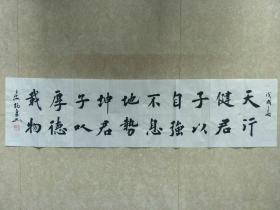 戊戌之夏
天行
健君
子以
自強
不息
地勢
坤君
子以
厚德
載物